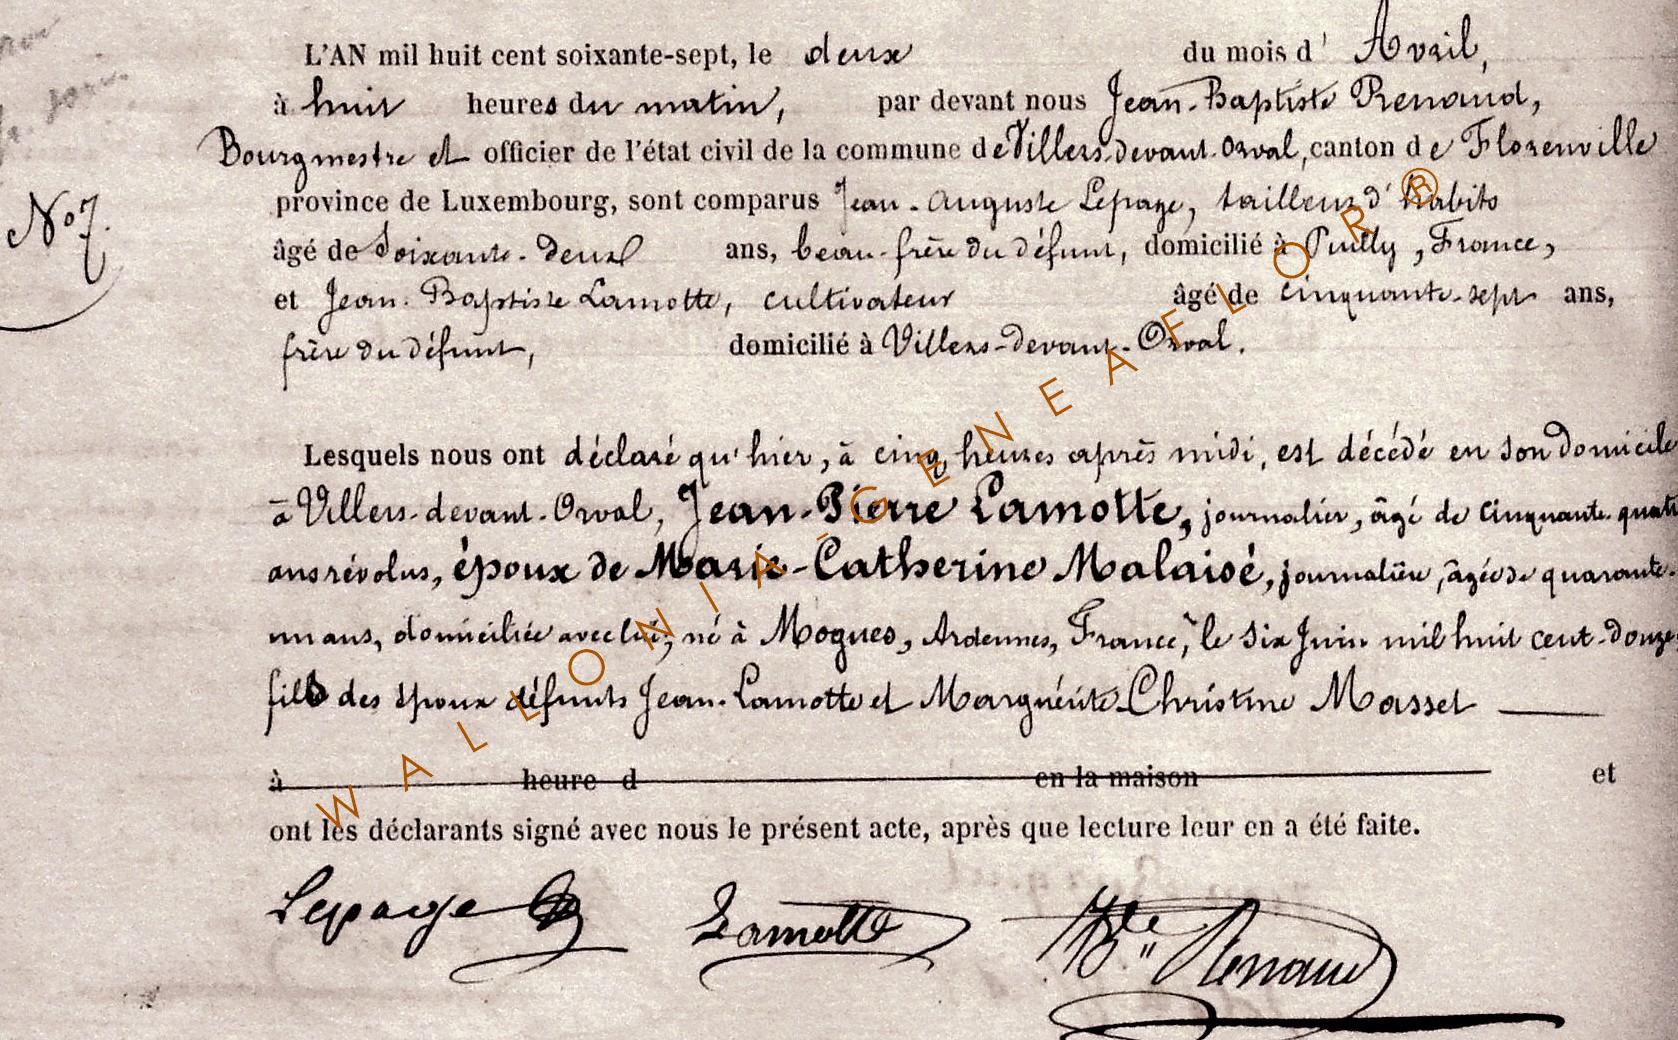 L'AN mil huit cent soixante-sept, le deux du mois d' Avril,
à huit heures du matin, par devant nous Jean-Baptiste Renaud,
Bourgmestre et officier de l'état civil de la commune de Villers-devant-Orval, canton de Florenville
province de Luxembourg, sont comparus Jean-Auguste Lepage, tailleur d'habits
N° 7.
âgé de Soixante-deux ans, beau-frère du défunt, domicilié à Puilly, France,
et Jean-Baptiste Lamotte, cultivateur âgé de cinquante-sept ans,
frère du défunt, domicilié à Villers-devant-Orval.
Lesquels nous ont déclaré qu'hier, à cinq heures après midi, est décédé en son domicile
à Villers-devant-Orval, Jean-Pierre Lamotte, journalier, âgé de cinquante-quatre
ans révolus, époux de Marie-Catherine Malaisé, journalière, âgée de quarante-
un ans, domiciliée avec lui; né à Mogues, Ardennes, France, le six Juin mil huit cent-douze,
fils des époux défunts Jean-Lamotte et Marguérite-Christine Masset
à heure d en la maison et
ont les déclarants signé avec nous le présent acte, après que lecture leur en a été faite.
Lepage Lamotte JBte Renaud
WALLONIA-GENEAFLOR®